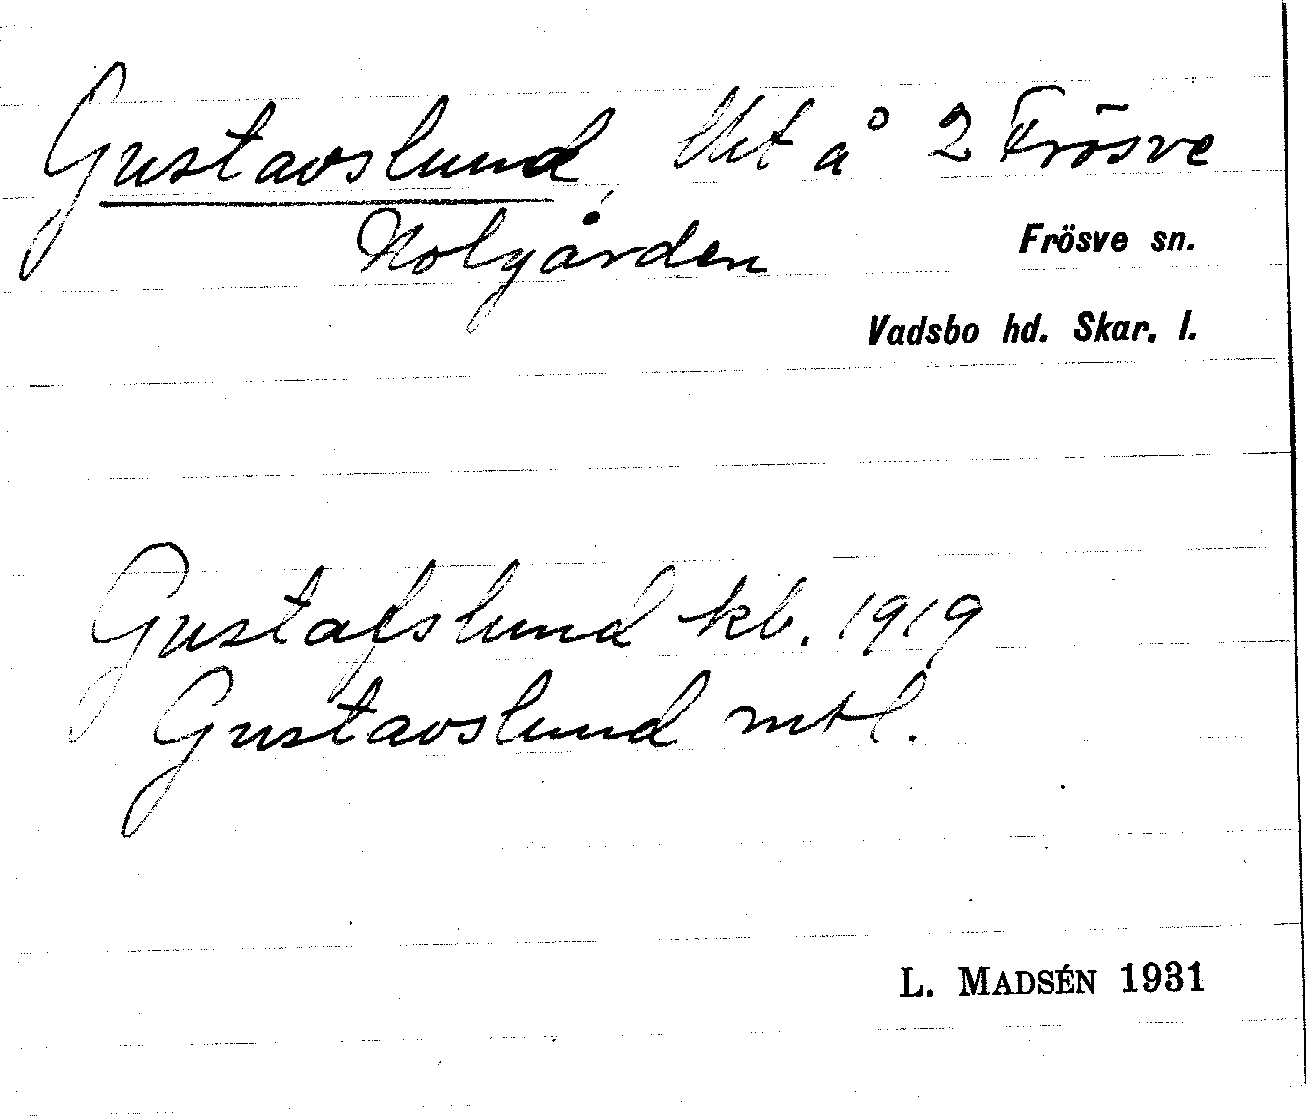 Gustavslund, lht å 2 Frösve
Nolgården
Frösve sn.
Vadsbo hd. Skar. l.
Gustafslund kb. 1919
Gustavslund mtl.
L. MADSÉN 1931